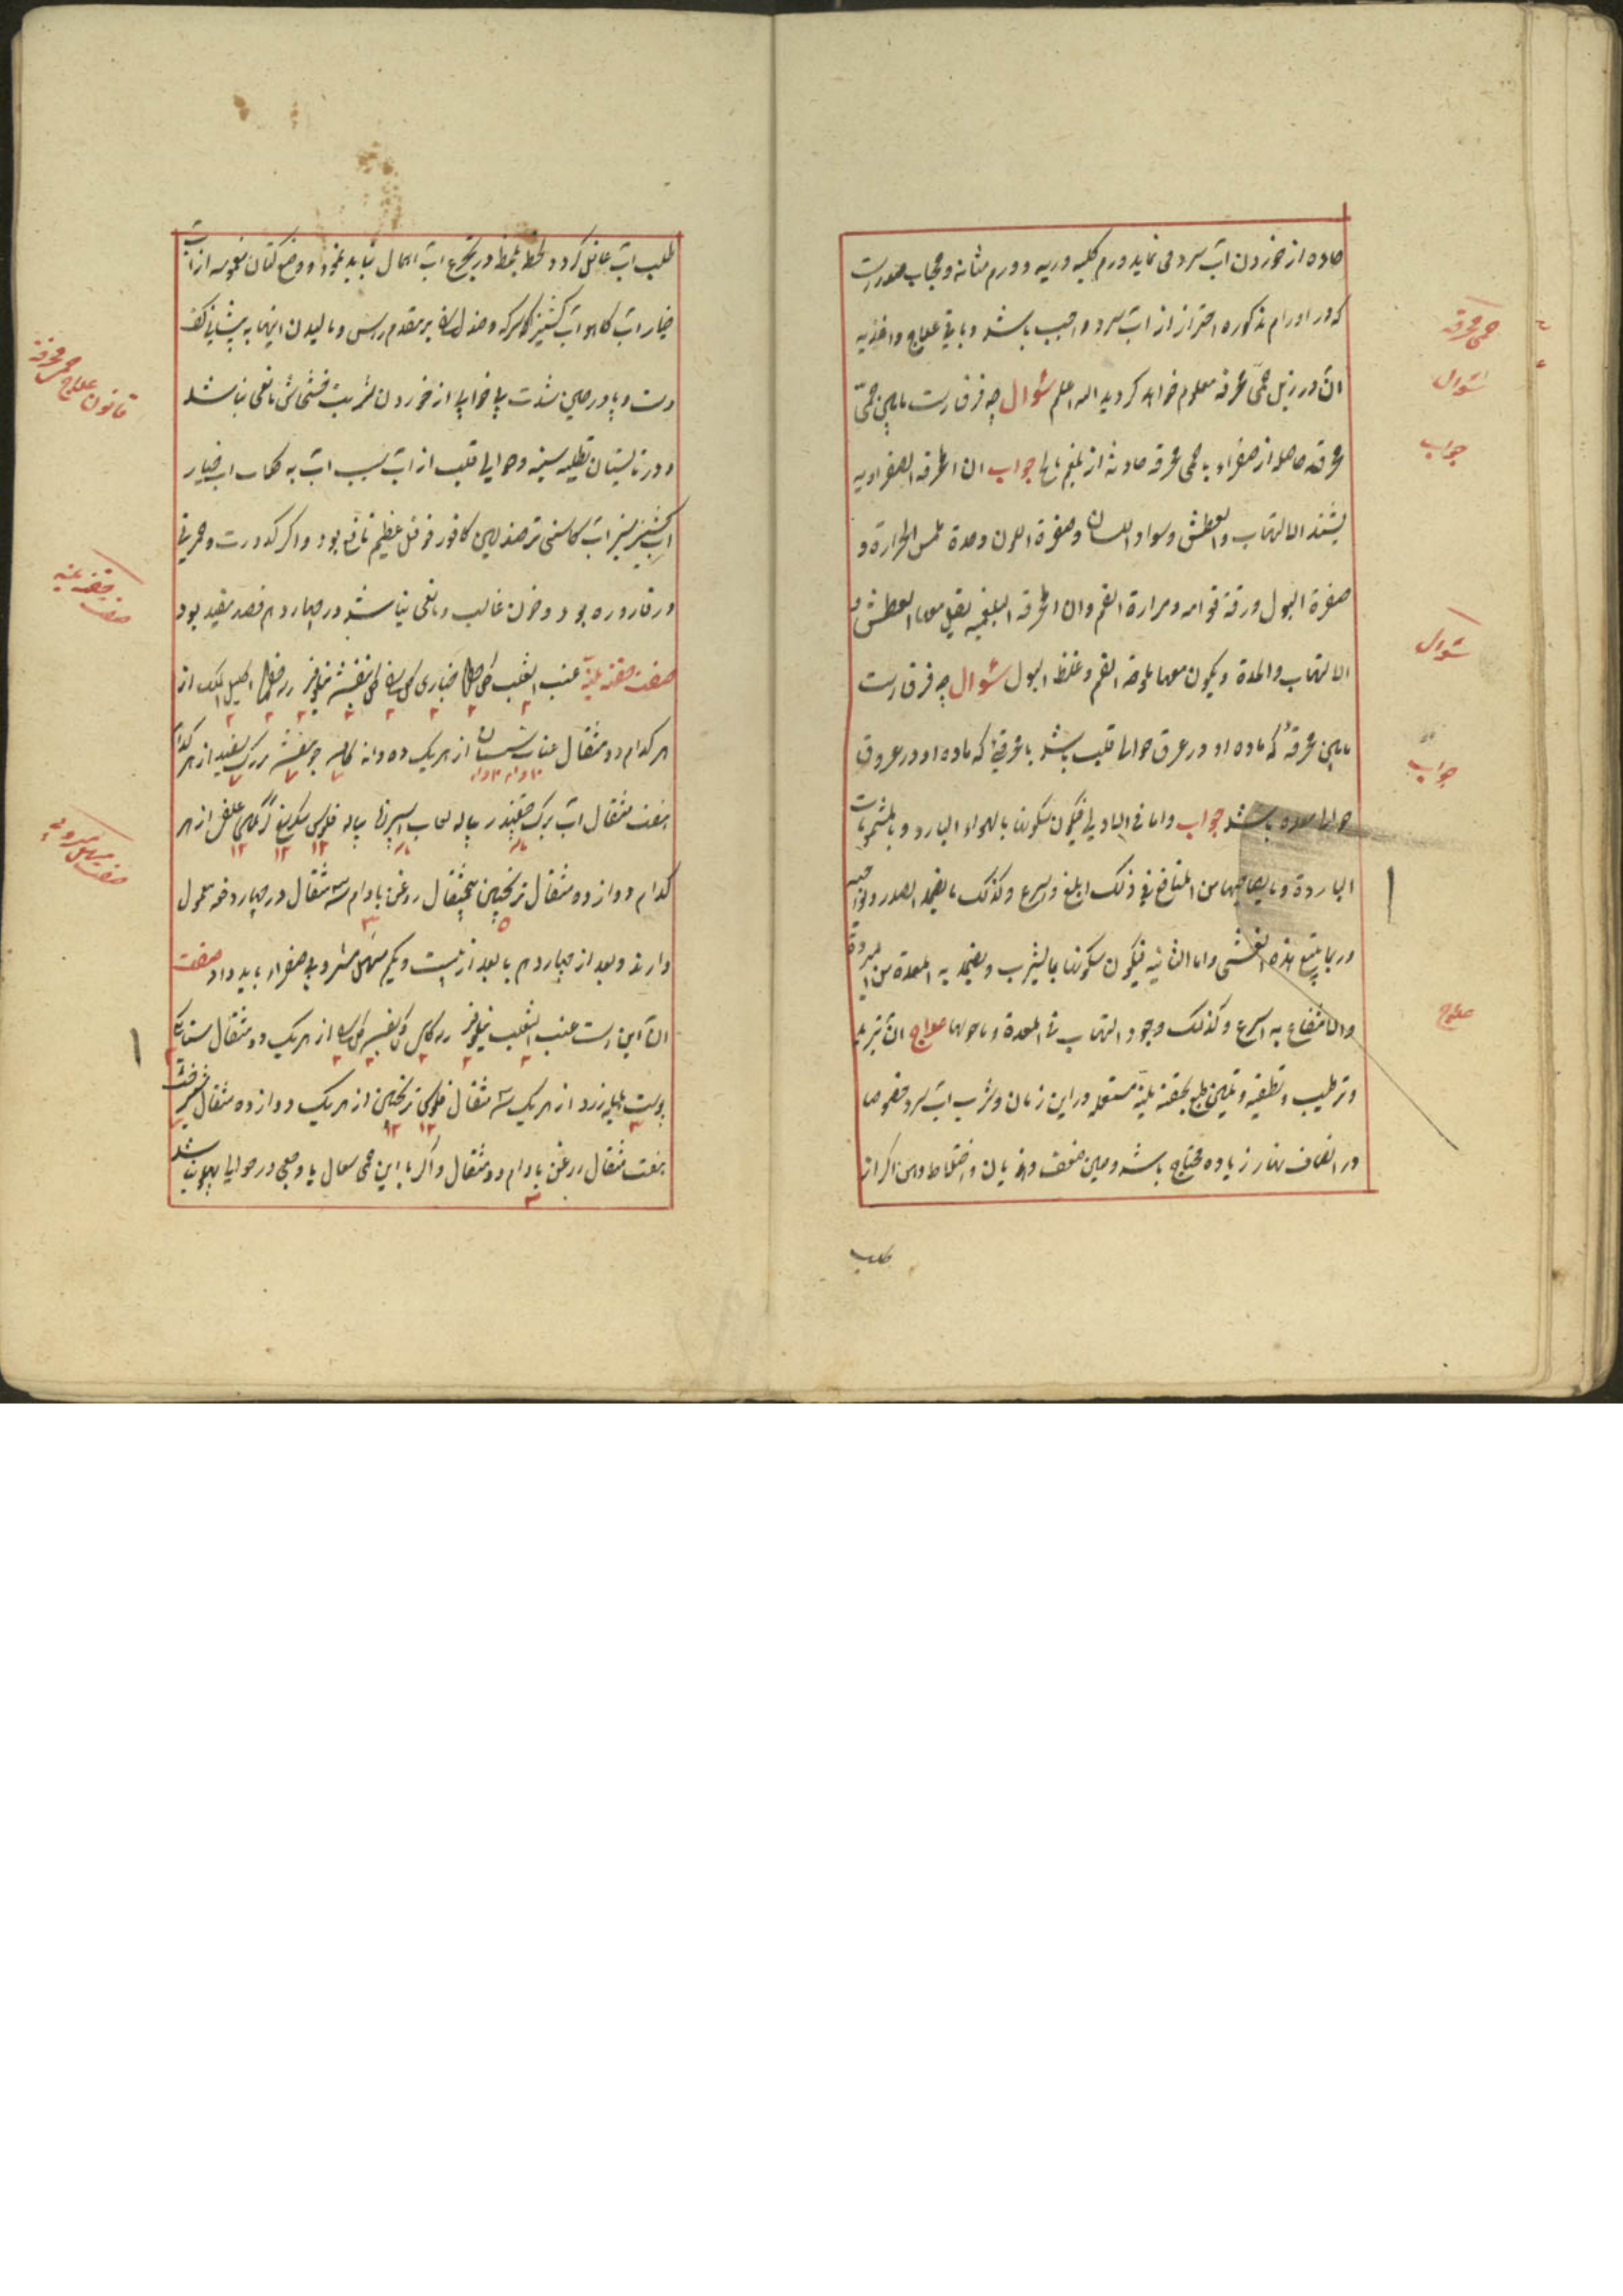 حاده از خوردن آب سرد می نماید ورم کلیه و ریه و ورم مثانه و حجاب صدر است
که در اورام مذکوره احتراز از آب سرد واجب باشد و باقی علاج و اغذیه
آن در ذیل حمّی محرقه معلوم خواهد کردید الله اعلم سئوال چه فرق است مابین حمّی
محرقه حاصله از صفراء یا حمی محرقه حادثه از بلغم مالح جواب ان المحرقه الصفراویه
یشتد الالتهاب والعطش وسواد اللسان وصفرة اللون وحدة ملمس الحرارة و
صفرة البول ورقة قوامه ومرارة الفم وان المحرقه البلغمیه یقل معها العطش و
الالتهاب والحدة ویکون معها ملوحة الفم وغلظ البول سئوال چه فرق است
مابین محرقه که ماده او در عرق حوالی قلب باشد با محرقهٔ که ماده او در عروق
حوالی معده باشد جواب واما فی الاولی فیکون سکونها بالهواء البارد وبالمشمومات
الباردة وما یصاحبهما من المنافع فی ذلک ابلغ واسرع وکذلک ما یضمد الصدر ونواحیه
وربما یتبع هذه الغشی واما الثانیة فیکون سکونها بالشرب وبضمد به المعدة من المبردة
والانتفاع به اسرع وکذلک وجود التهاب فی المعدة وما حولها علاج آن تبرید
و ترطیب و تطفیه و تلیین طبع بحقنه لیّنه مستعمله در این زمان و شرب آب سرد خصوصا
در انصاف نهار زیاده محتاج باشد و حین ضعف و هذیان و اختلاط ذهن اکر از
طلب
حمی محرقه
سئوال
جواب
سئوال
جواب
علاج
طلب آب غافل کردد لحظه بلحظه در تجرع آب اهمال نباید نمود و وضع کتان مغموسه از آب
خیار آب کاهو آب کشنیز سرکه و صندل بر مقدم راس و مالیدن اینها به پیشانی کف
دست و پا و در حین شدت بی خوابی از خوردن شربت خشخاش مانعی نباشد
و در تابستان تطلیه سینه و حوالی قلب از آب سیب آب به کلاب آب خیار
آب کشنیز سبز آب کاسنی تر صندلین کافور فوفل عظیم نافع بود و اکر کدورت و حمرتی
در قاروره بود و خون غالب و مانعی نباشد در چهاردهم فصد مفید بود
صفت حقنه لینه عنب الثعلب خبازی کل بنفشه نیلوفر اکلیل الملک از
هر کدام دو مثقال عناب سپستان از هر یک ده دانه جو مقشر سفید از هر کدام
هفت مثقال آب برک چغندر پیاله لعاب اسپرزه پیاله فلوس شکرسرخ از هر
کدام دوازده مثقال ترنجبین پنج مثقال روغن بادام سه مثقال در چهار دفعه معمول
دارند و بعد از چهاردهم یا بعد از بیست و یکم مسهل مشروبی صفراء باید داد صفت
آن این است عنب الثعلب نیلوفر کل بنفشه از هر یک دو مثقال سنا مکی
پوست هلیله زرد از هر یک سه مثقال فلوس ترنجبین از هر یک دوازده مثقال شیرخشت
هفت مثقال روغن بادام دو مثقال و اکر با این حمی سعال یا وجعی در حوالی پهلو باشد
قانون علاج حمی محرقه
صفت حقنه لینه
صفت مسهل مشروبی